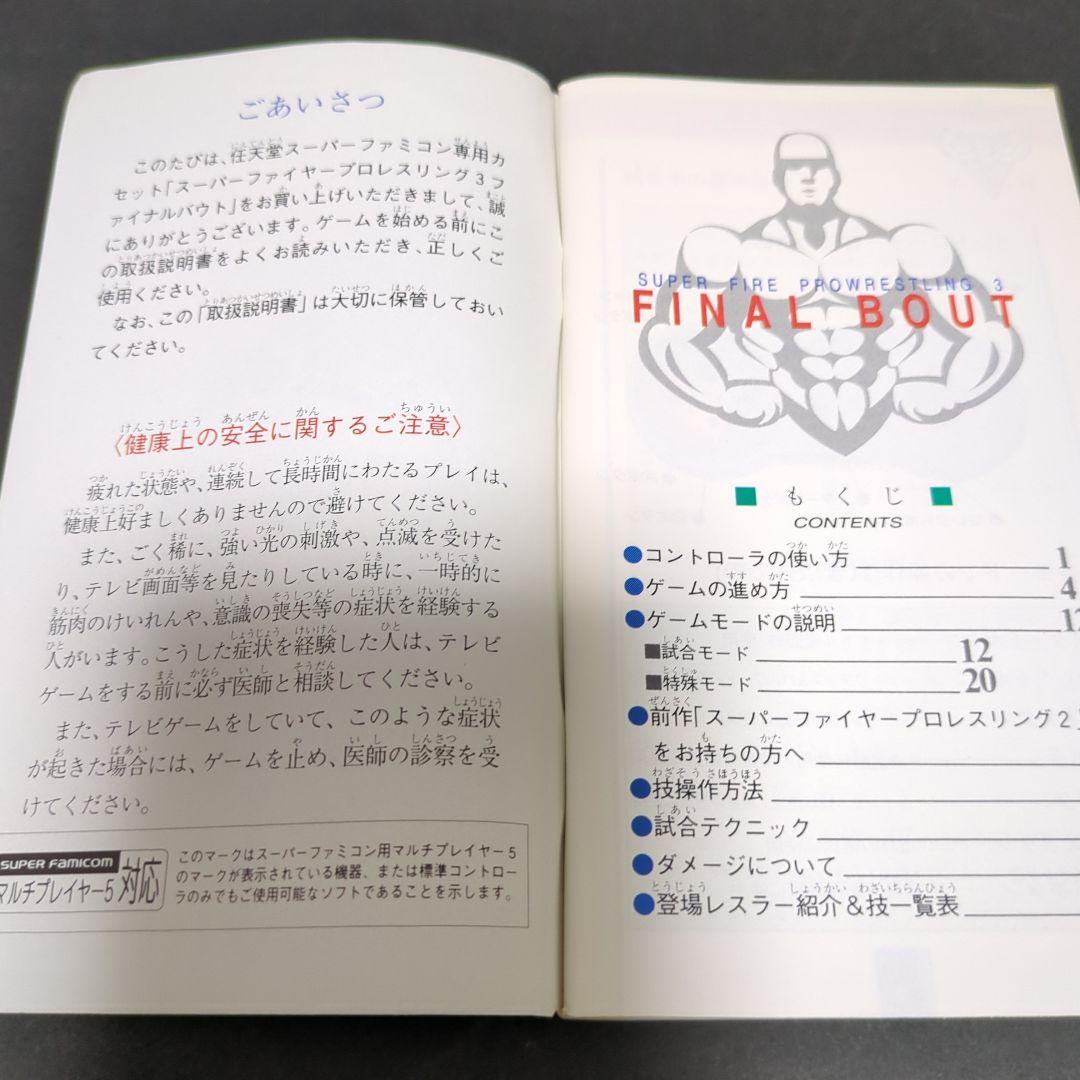 ごあいさつ
このたびは、任天堂スーパーファミコン専用カ
セット「スーパーファイヤープロレスリング3フ
ァイナルバウト」をお買い上げいただきまして、誠
にありがとうございます。ゲームを始める前にこ
の取扱説明書をよくお読みいただき、正しくご
使用ください。
なお、この「取扱説明書」は大切に保管しておい
てください。
〈健康上の安全に関するご注意〉
疲れた状態や、連続して長時間にわたるプレイは、
健康上好ましくありませんので避けてください。
また、ごく稀に、強い光の刺激や、点滅を受けた
り、テレビ画面等を見たりしている時に、一時的に
筋肉のけいれんや、意識の喪失等の症状を経験する
人がいます。こうした症状を経験した人は、テレビ
ゲームをする前に必ず医師と相談してください。
また、テレビゲームをしていて、このような症状
が起きた場合には、ゲームを止め、医師の診察を受
けてください。
SUPER FAMICOM
マルチプレイヤー5 対応
このマークはスーパーファミコン用マルチプレイヤー5
のマークが表示されている機器、または標準コントロー
ラのみでもご使用可能なソフトであることを示します。
SUPER FIRE PROWRESTLING 3
FINAL BOUT
■ もくじ ■
CONTENTS
●コントローラの使い方 1
●ゲームの進め方 4
●ゲームモードの説明 12
■試合モード 12
■特殊モード 20
●前作「スーパーファイヤープロレスリング2」
をお持ちの方へ
●技操作方法
●試合テクニック
●ダメージについて
●登場レスラー紹介&技一覧表